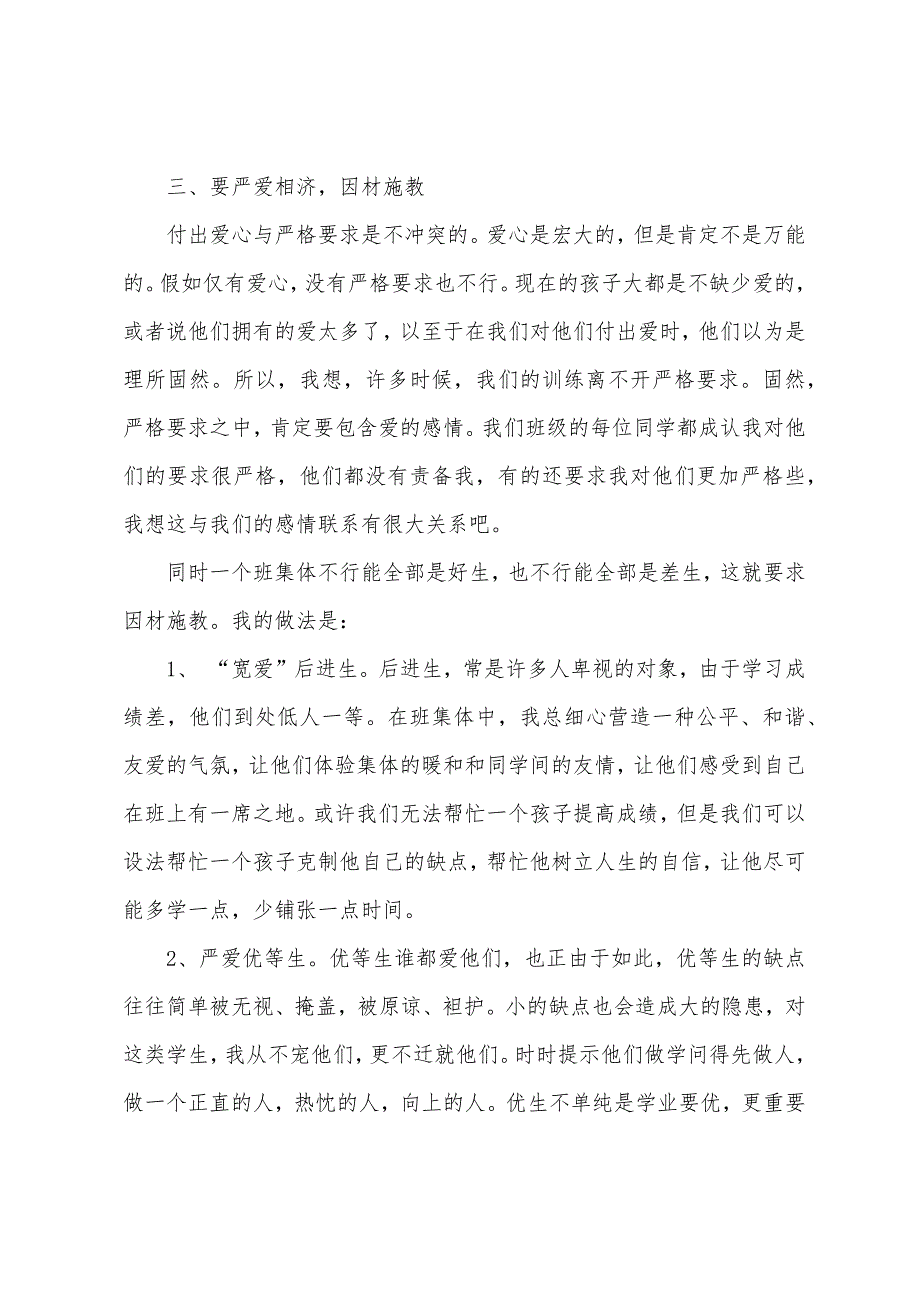 三、要严爱相济，因材施教
付出爱心与严格要求是不冲突的。爱心是宏大的，但是肯定不是万能
的。假如仅有爱心，没有严格要求也不行。现在的孩子大都是不缺少爱的，
或者说他们拥有的爱太多了，以至于在我们对他们付出爱时，他们以为是
理所固然。所以，我想，许多时候，我们的训练离不开严格要求。固然，
严格要求之中，肯定要包含爱的感情。我们班级的每位同学都成认我对他
们的要求很严格，他们都没有责备我，有的还要求我对他们更加严格些，
我想这与我们的感情联系有很大关系吧。
同时一个班集体不行能全部是好生，也不行能全部是差生，这就要求
因材施教。我的做法是：
1、 “宽爱”后进生。后进生，常是许多人卑视的对象，由于学习成
绩差，他们到处低人一等。在班集体中，我总细心营造一种公平、和谐、
友爱的气氛，让他们体验集体的暖和和同学间的友情，让他们感受到自己
在班上有一席之地。或许我们无法帮忙一个孩子提高成绩，但是我们可以
设法帮忙一个孩子克制他自己的缺点，帮忙他树立人生的自信，让他尽可
能多学一点，少铺张一点时间。
2、严爱优等生。优等生谁都爱他们，也正由于如此，优等生的缺点
往往简单被无视、掩盖，被原谅、袒护。小的缺点也会造成大的隐患，对
这类学生，我从不宠他们，更不迁就他们。时时提示他们做学问得先做人，
做一个正直的人，热忱的人，向上的人。优生不单纯是学业要优，更重要